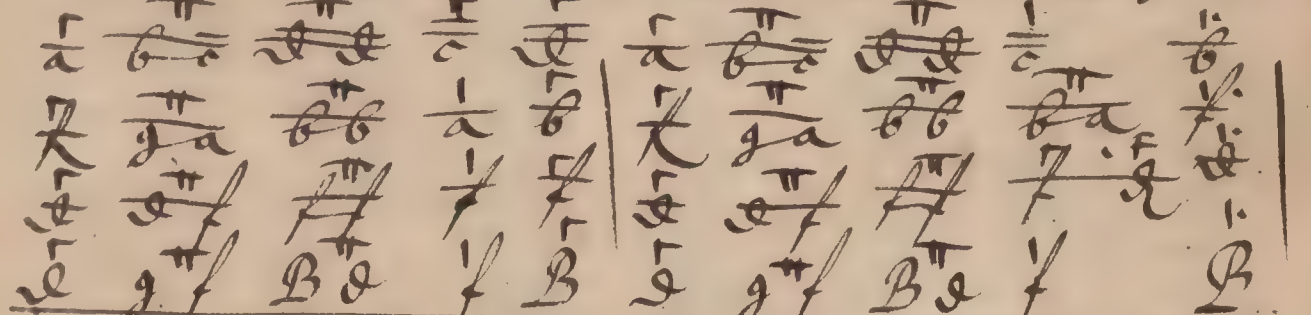 a b c d d c d a b c d d c b
R g a b b a b | R g a b b b a f |
d d f f f f f d d f f f f d d
d g f B d f B d g f B d f B